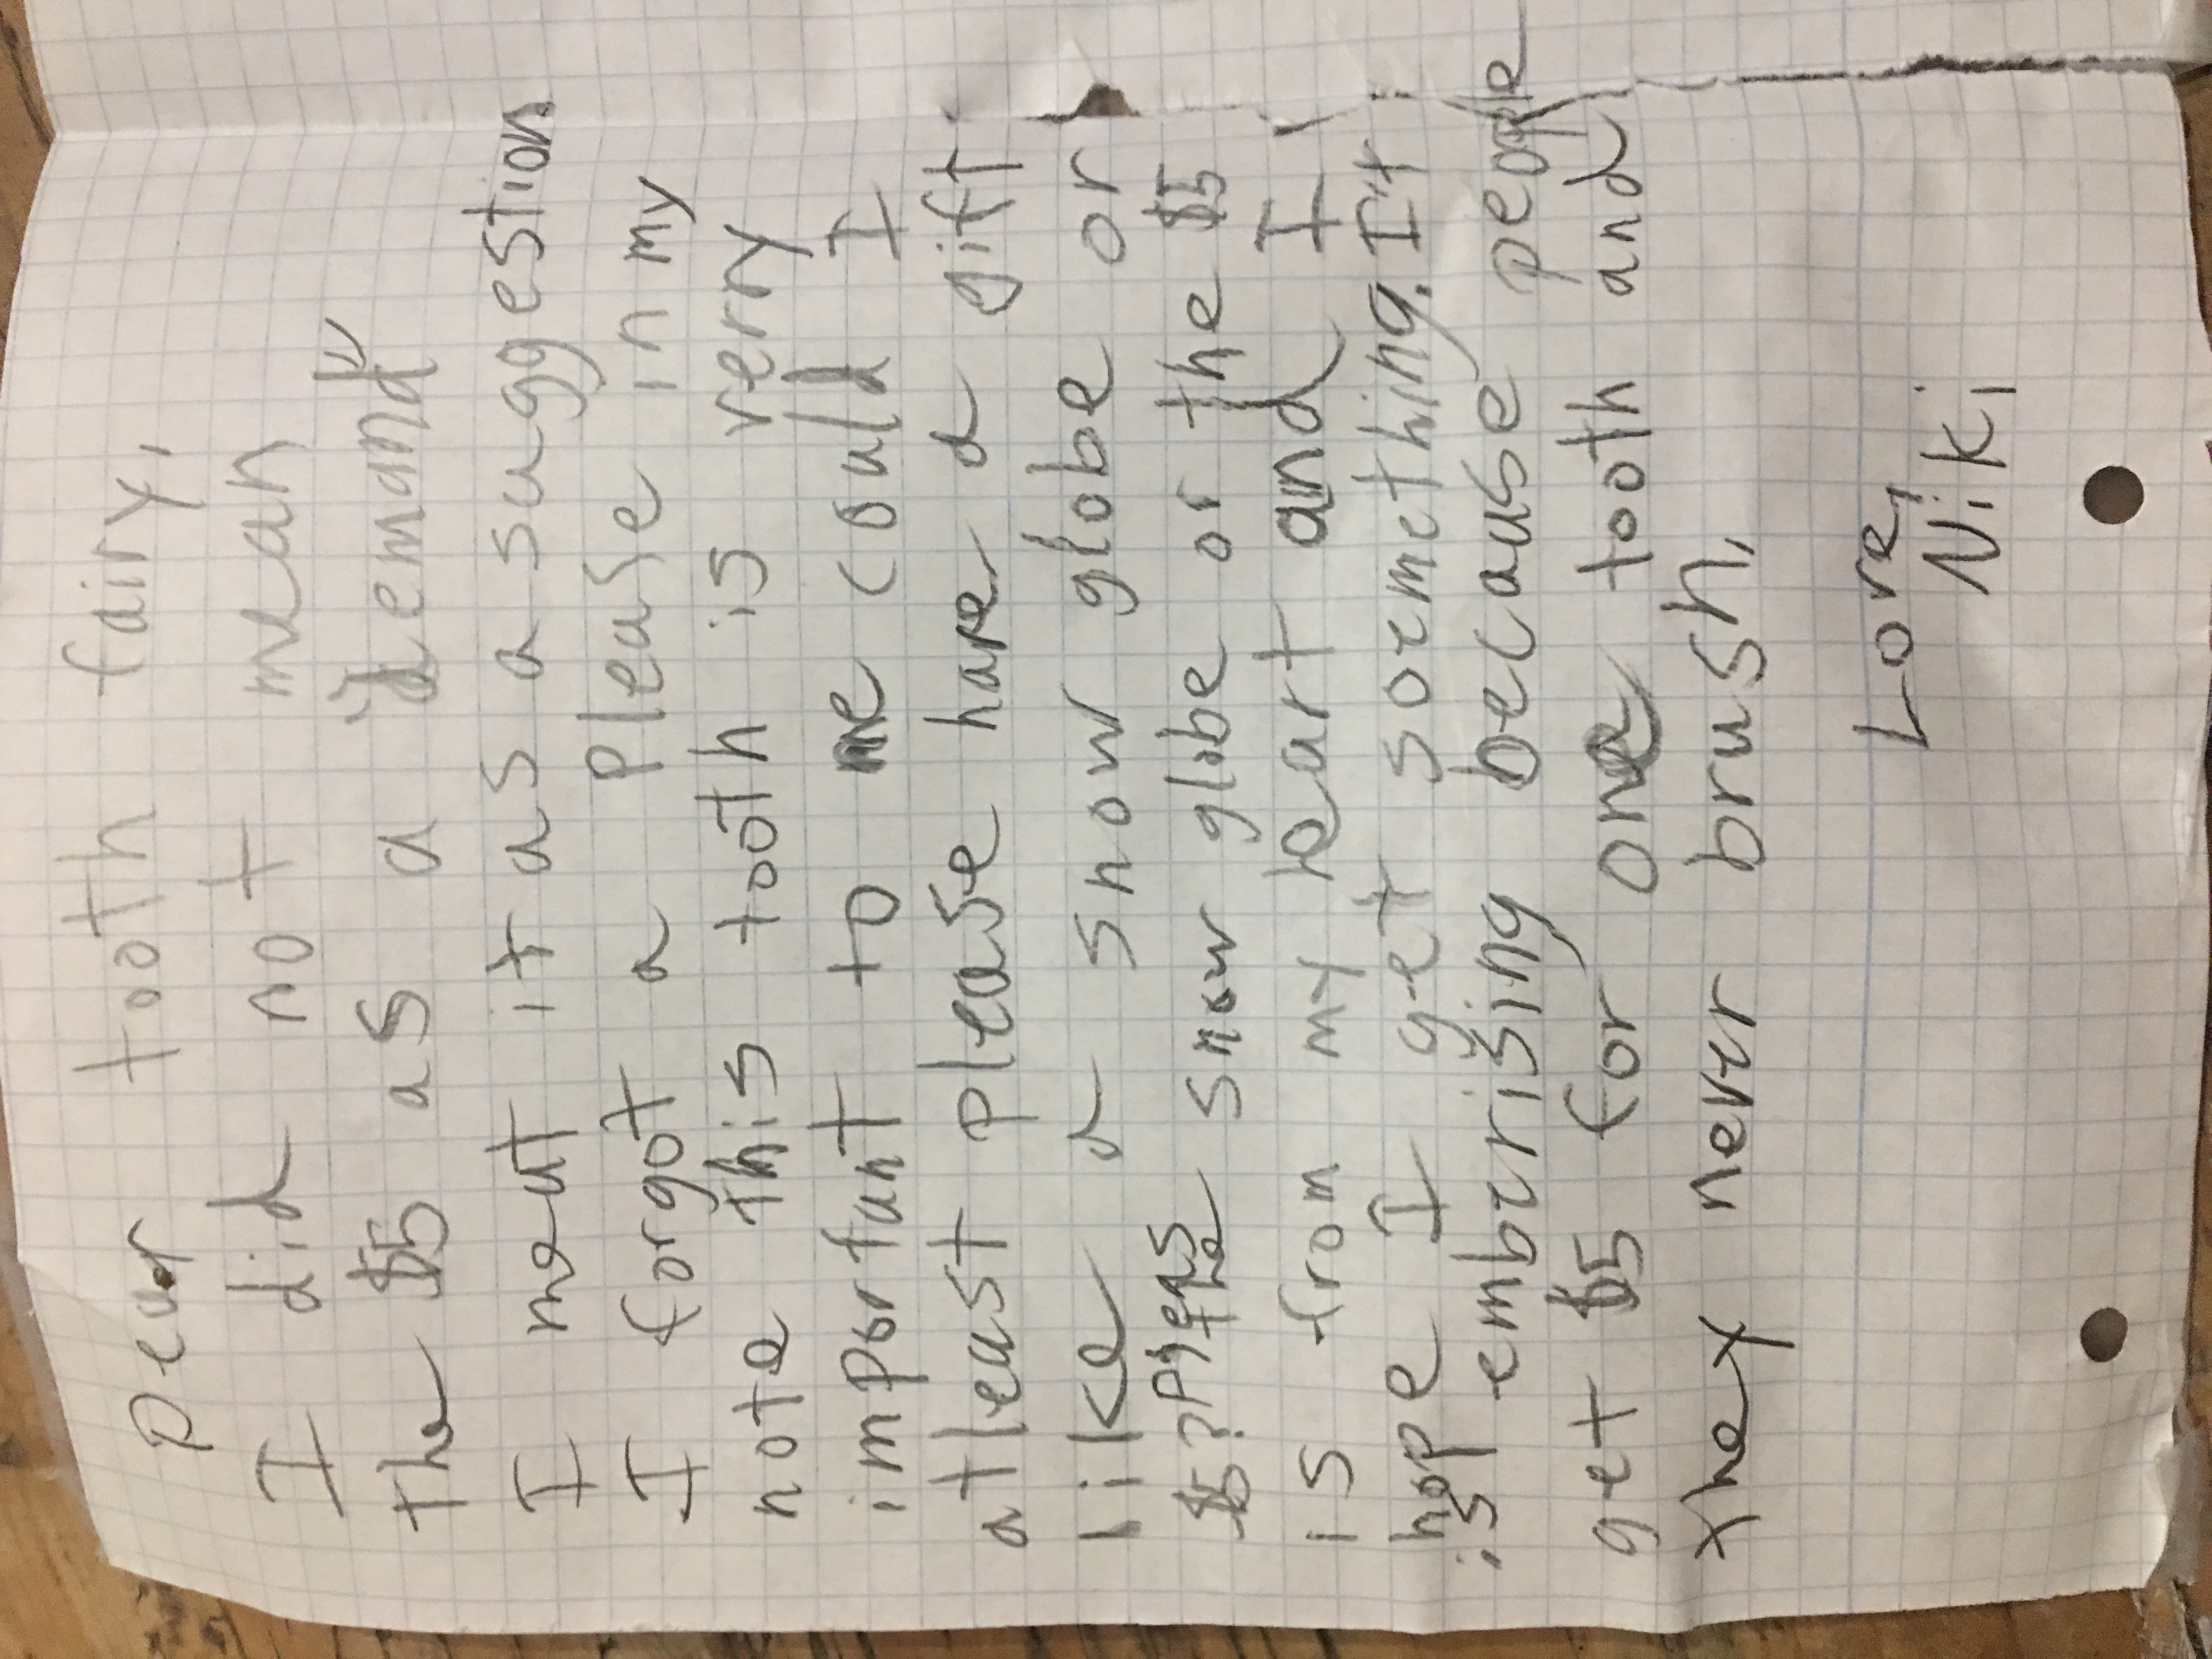 Dear tooth fairy,
I did not mean
the $5 as a "demand"
I meut it as a suggestion
I forgot a please in my
note this tooth is verry
important to me could I
atleast please have a gift
like a snow globe or
$5? Pleas
the snow globe or the $5
is from my heart and I
hope I get something. It
is emberising because people
get $5 for one tooth and
they never brush,
Love,
Niki